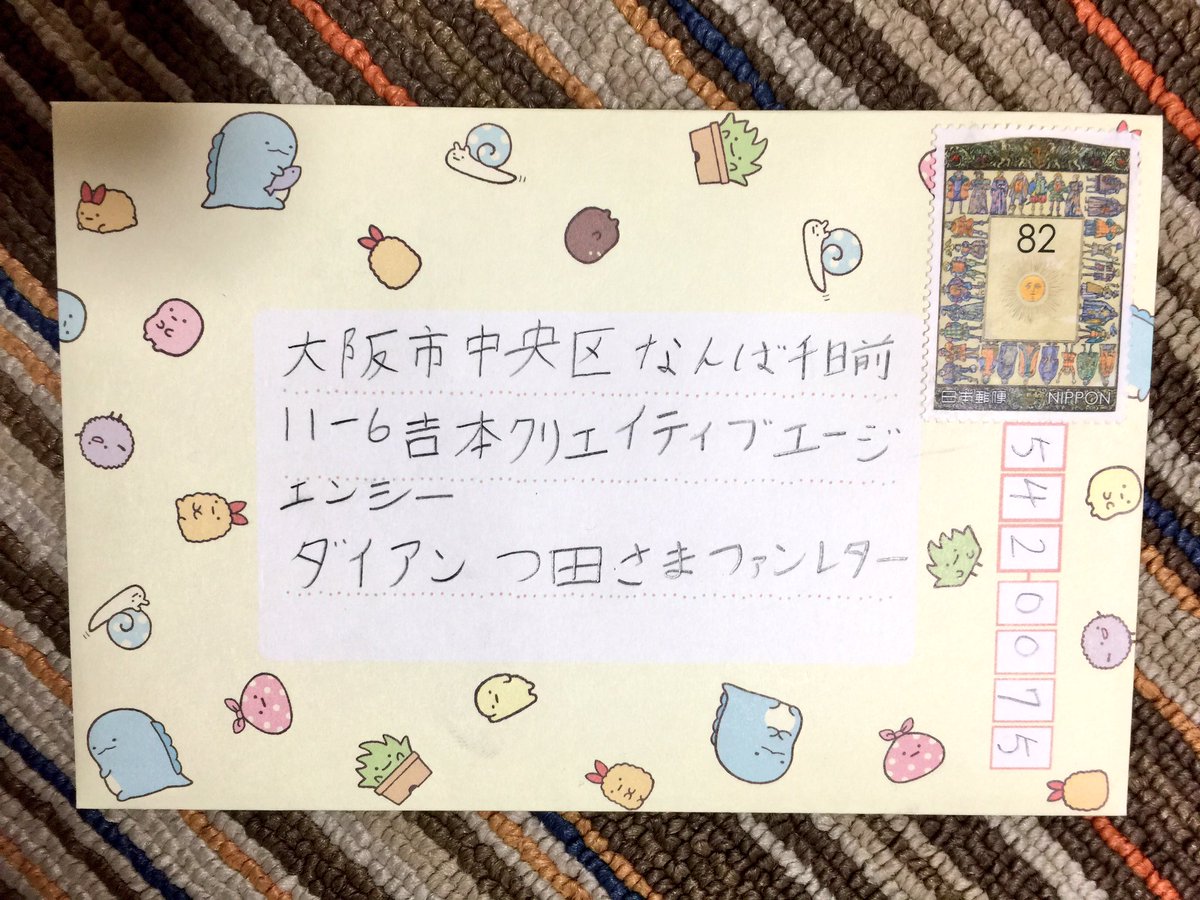 大阪市中央区なんば千日前
11-6 吉本クリエイティブエージ
ェンシー
ダイアン つ田さまファンレター
82
日本郵便 NIPPON
5420075